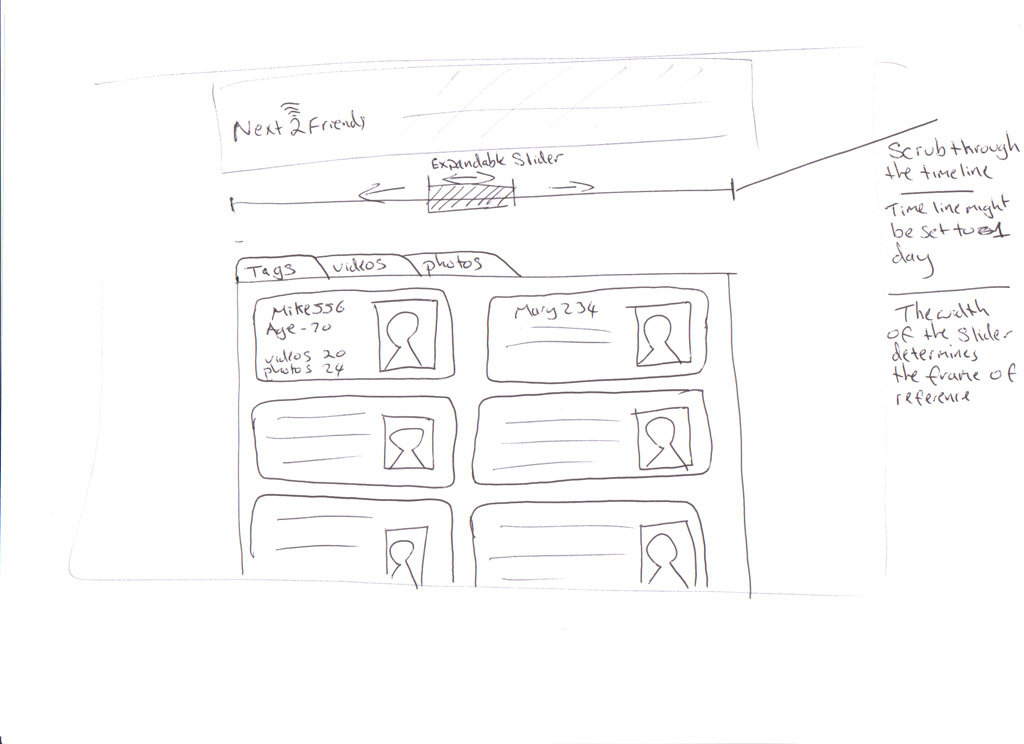 Next 2 Friends
Expandable Slider
Scrub through
the timeline
Time line might
be set to 1
day
The width
of the Slider
determines
the frame of
reference
Tags videos photos
Mike556
Age - 20
videos 20
photos 24
Mary234